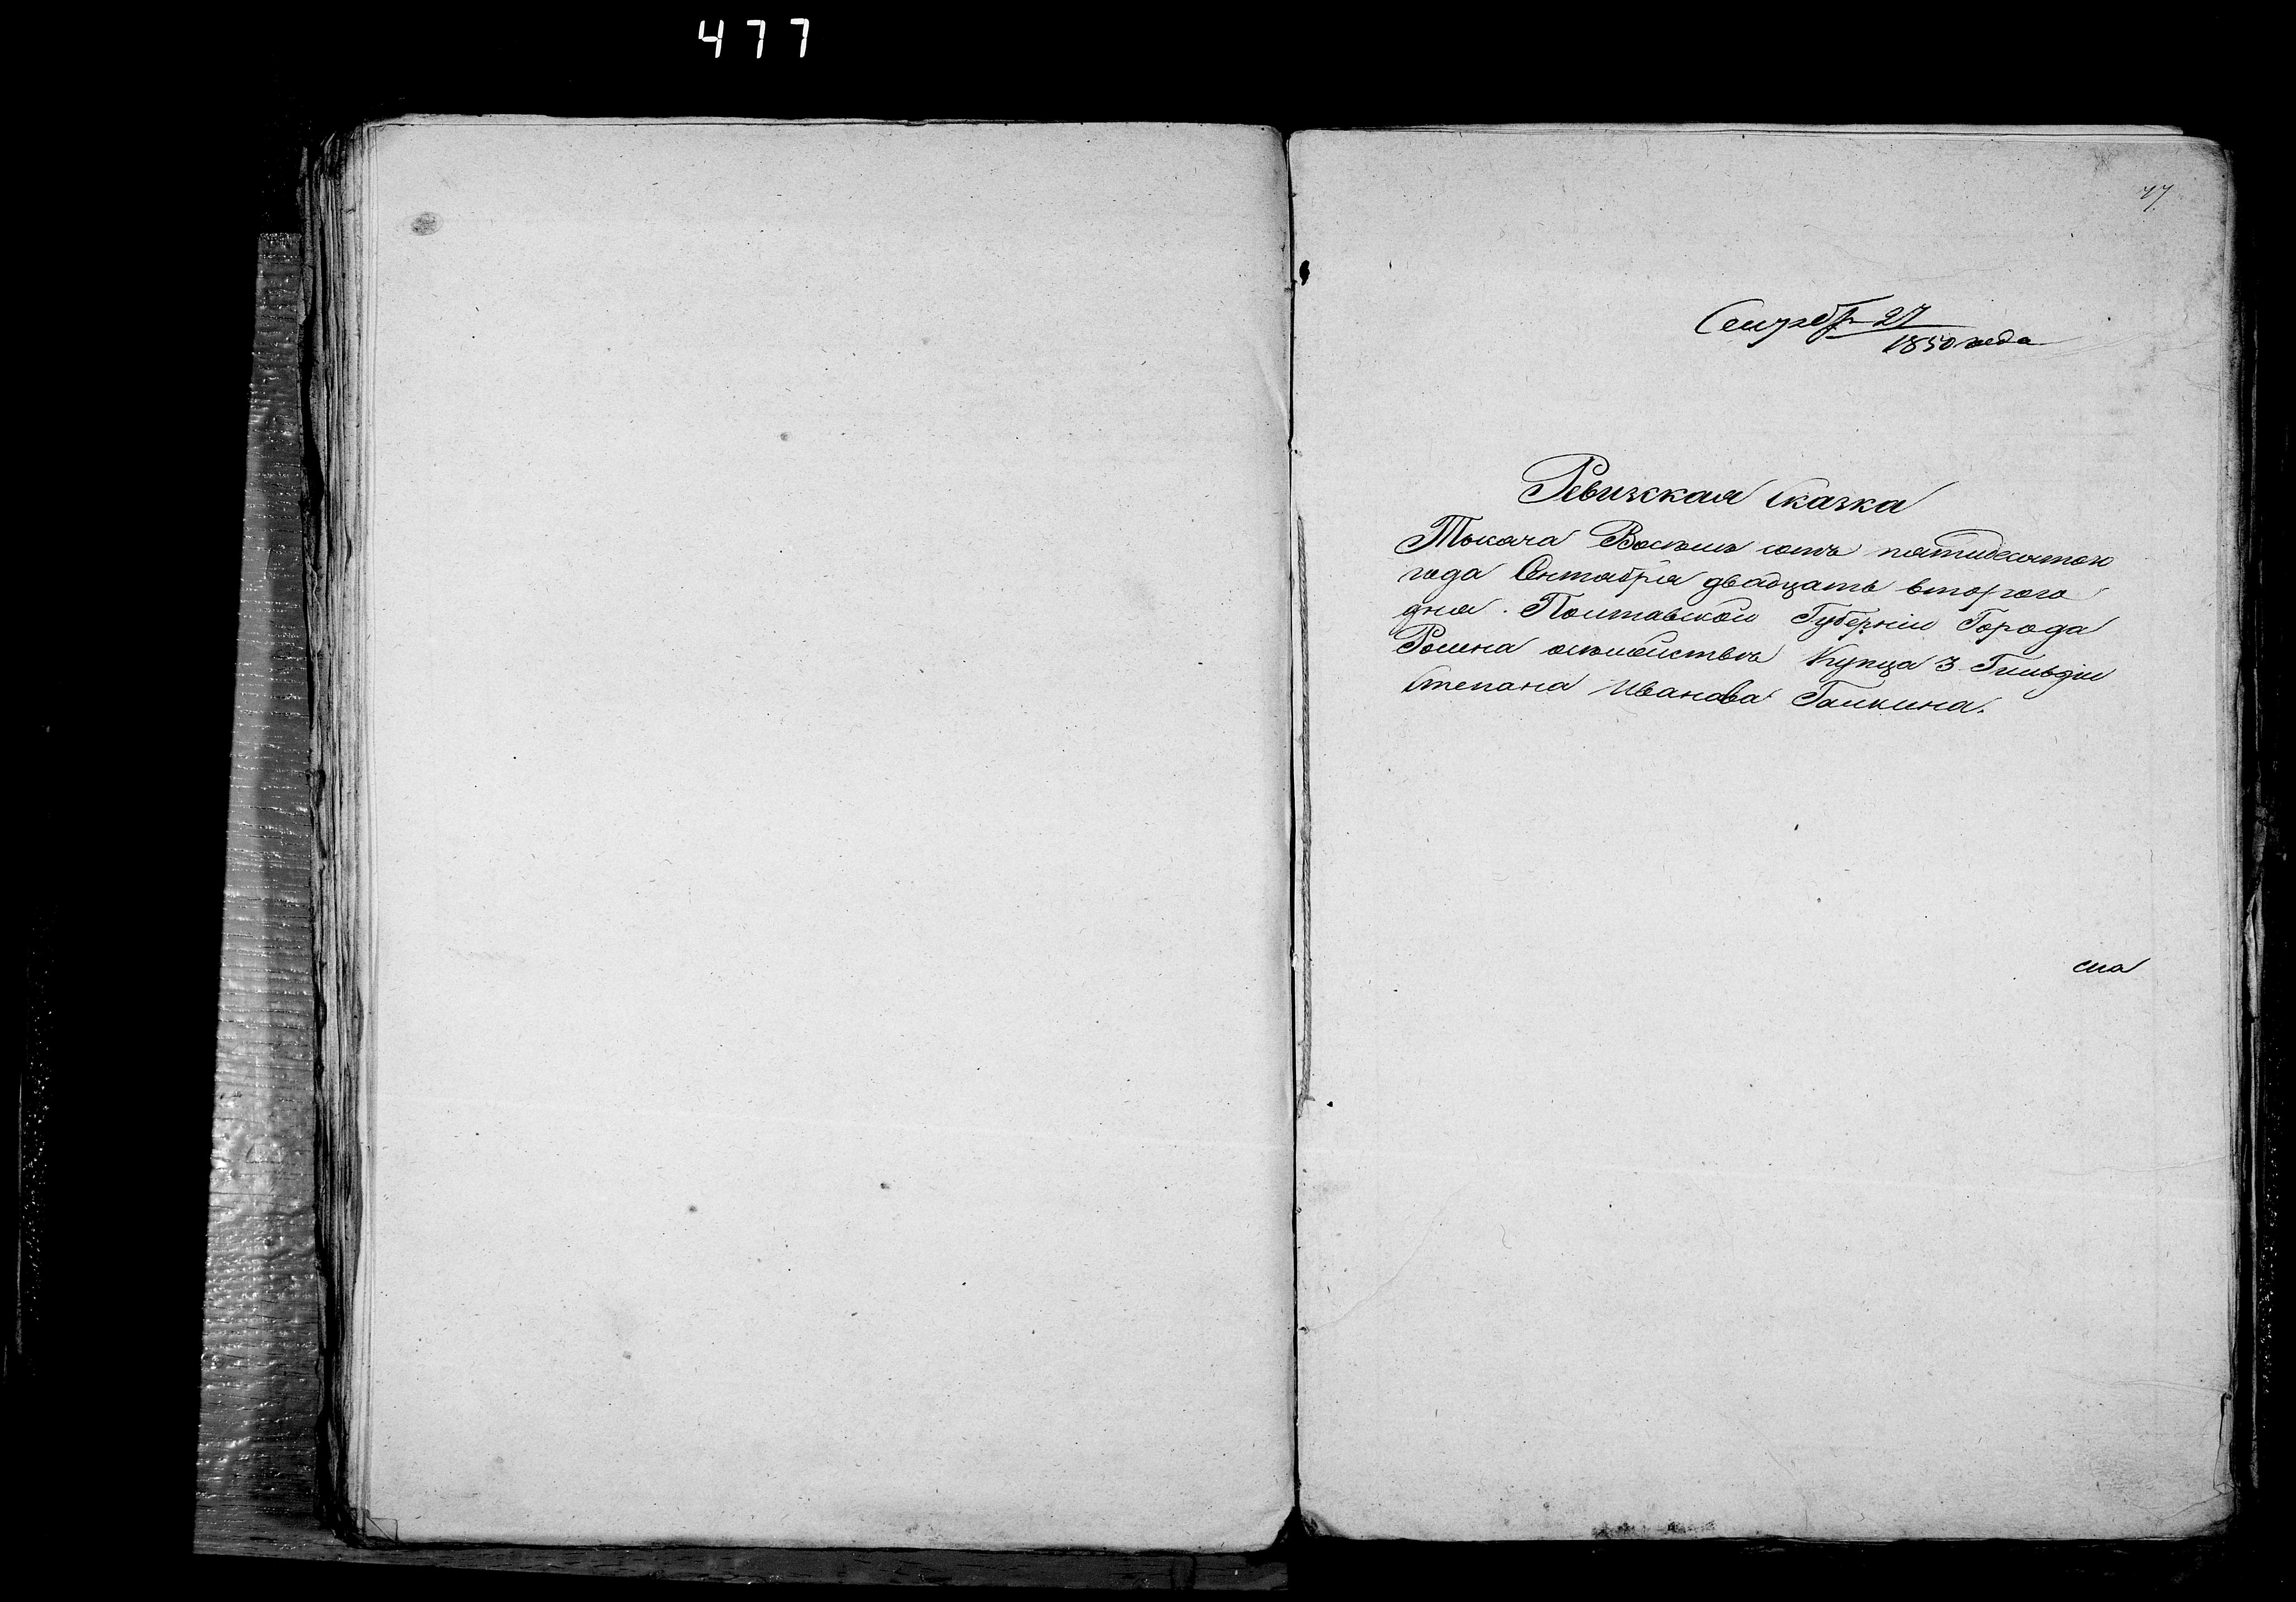 477
77
Сентября 27
1850 года
Ревизская Сказка
Тысяча Восемь сотъ пятидесятого
года Сентября двадцать второго
дня. Полтавской Губерніи Города
Ромна осемействе Купца 3 Гильдіи
Степана Иванова Галкина.